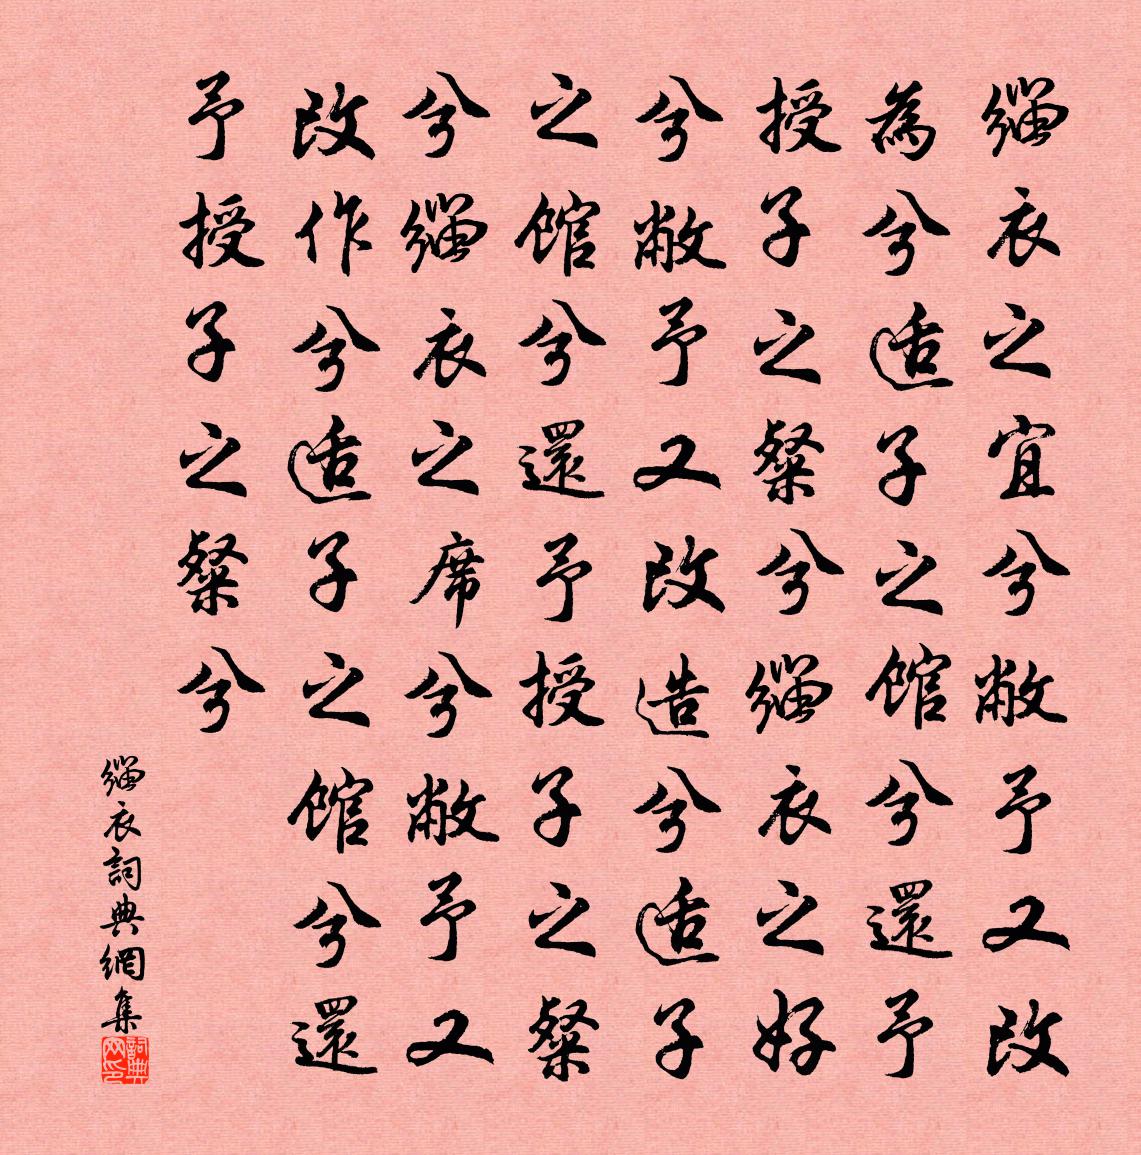 緇衣之宜兮敝予又改
為兮适子之館兮還予
授子之粲兮緇衣之好
兮敝予又改造兮适子
之館兮還予授子之粲
兮緇衣之席兮敝予又
改作兮适子之館兮還
予授子之粲兮
緇衣詞典網集
詞典
网印